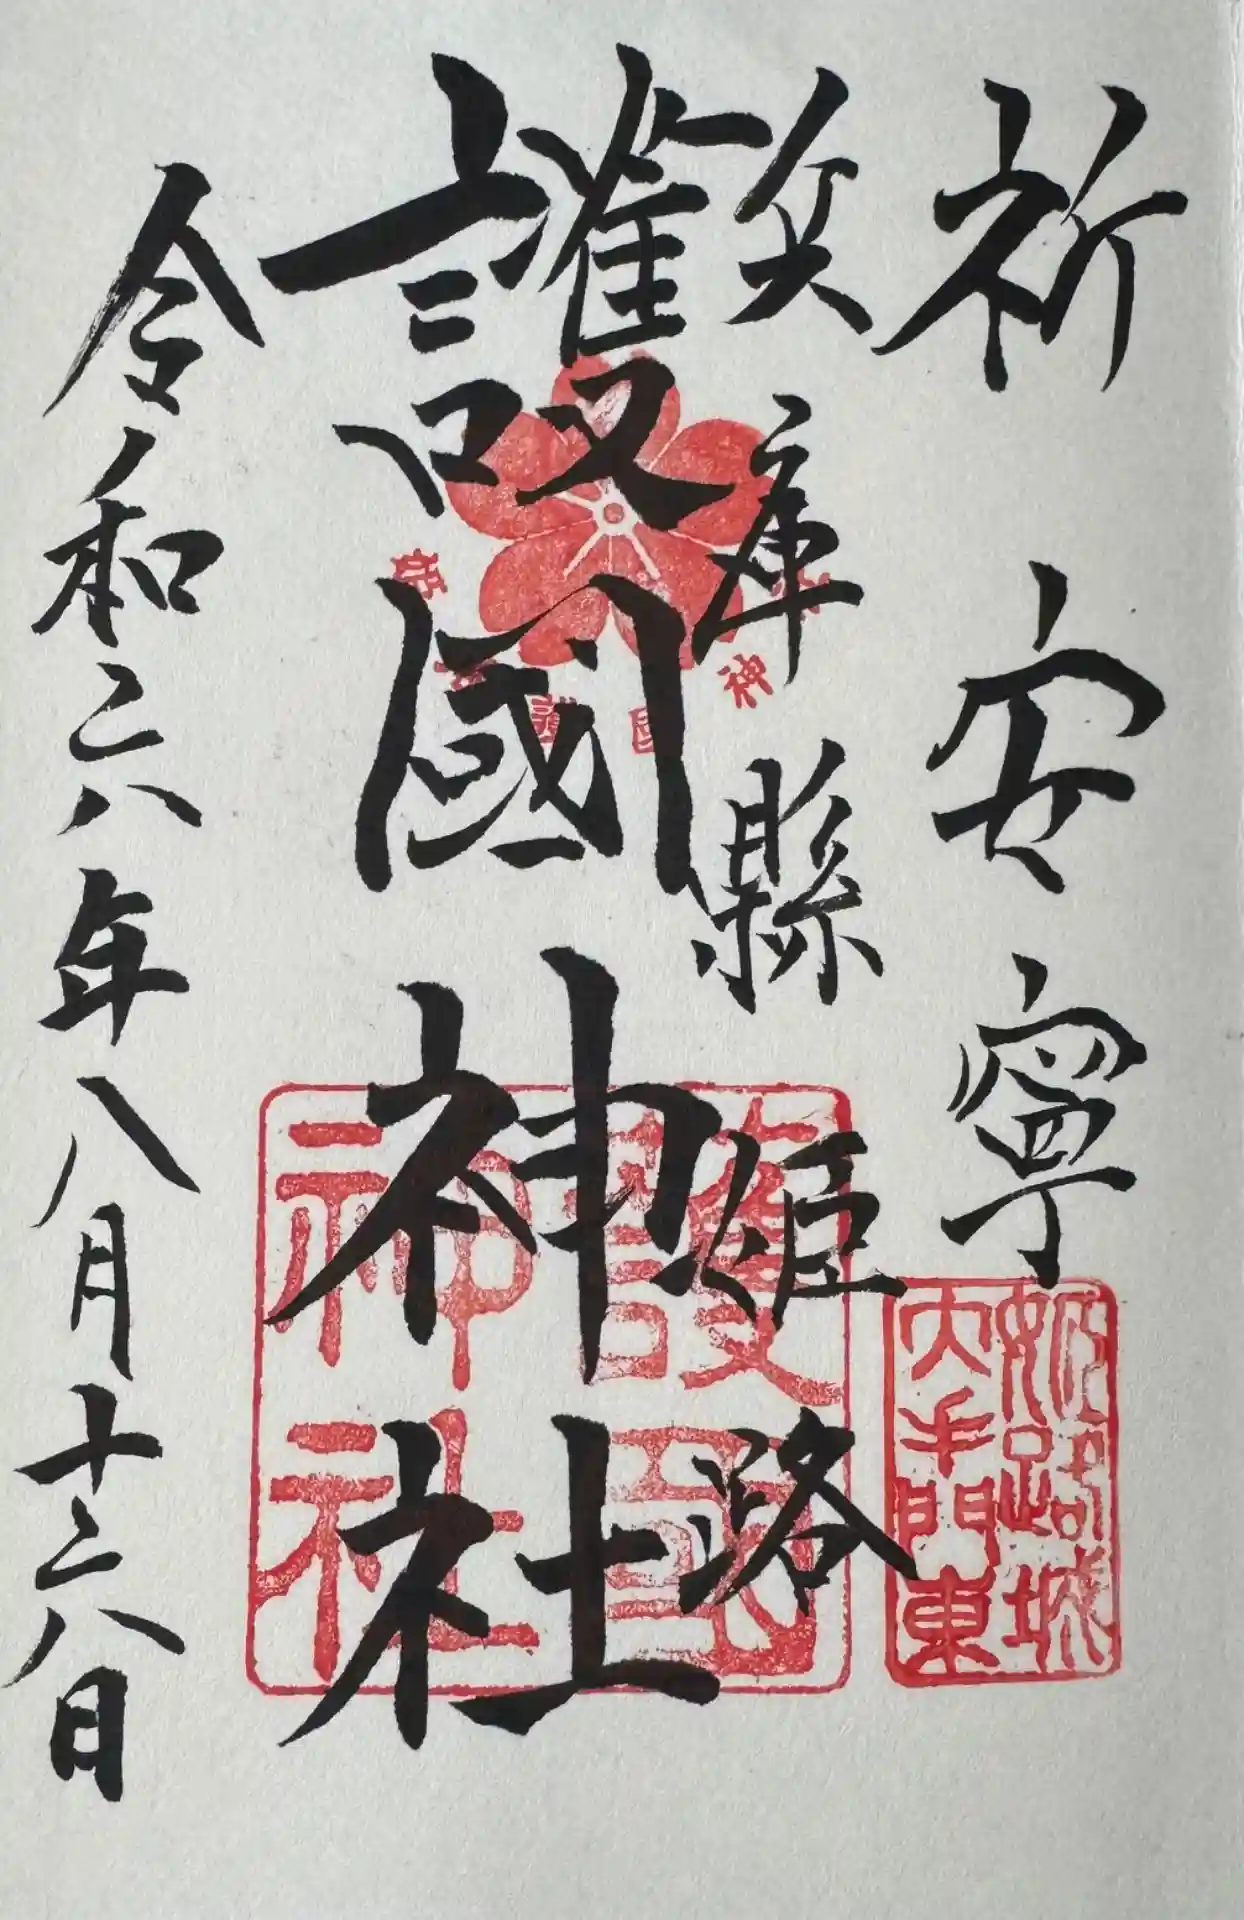 祈安寧
兵庫縣姫路
護國神社
令和六年八月十六日
姫路護国神社
護國神社
姫路城
大手門東